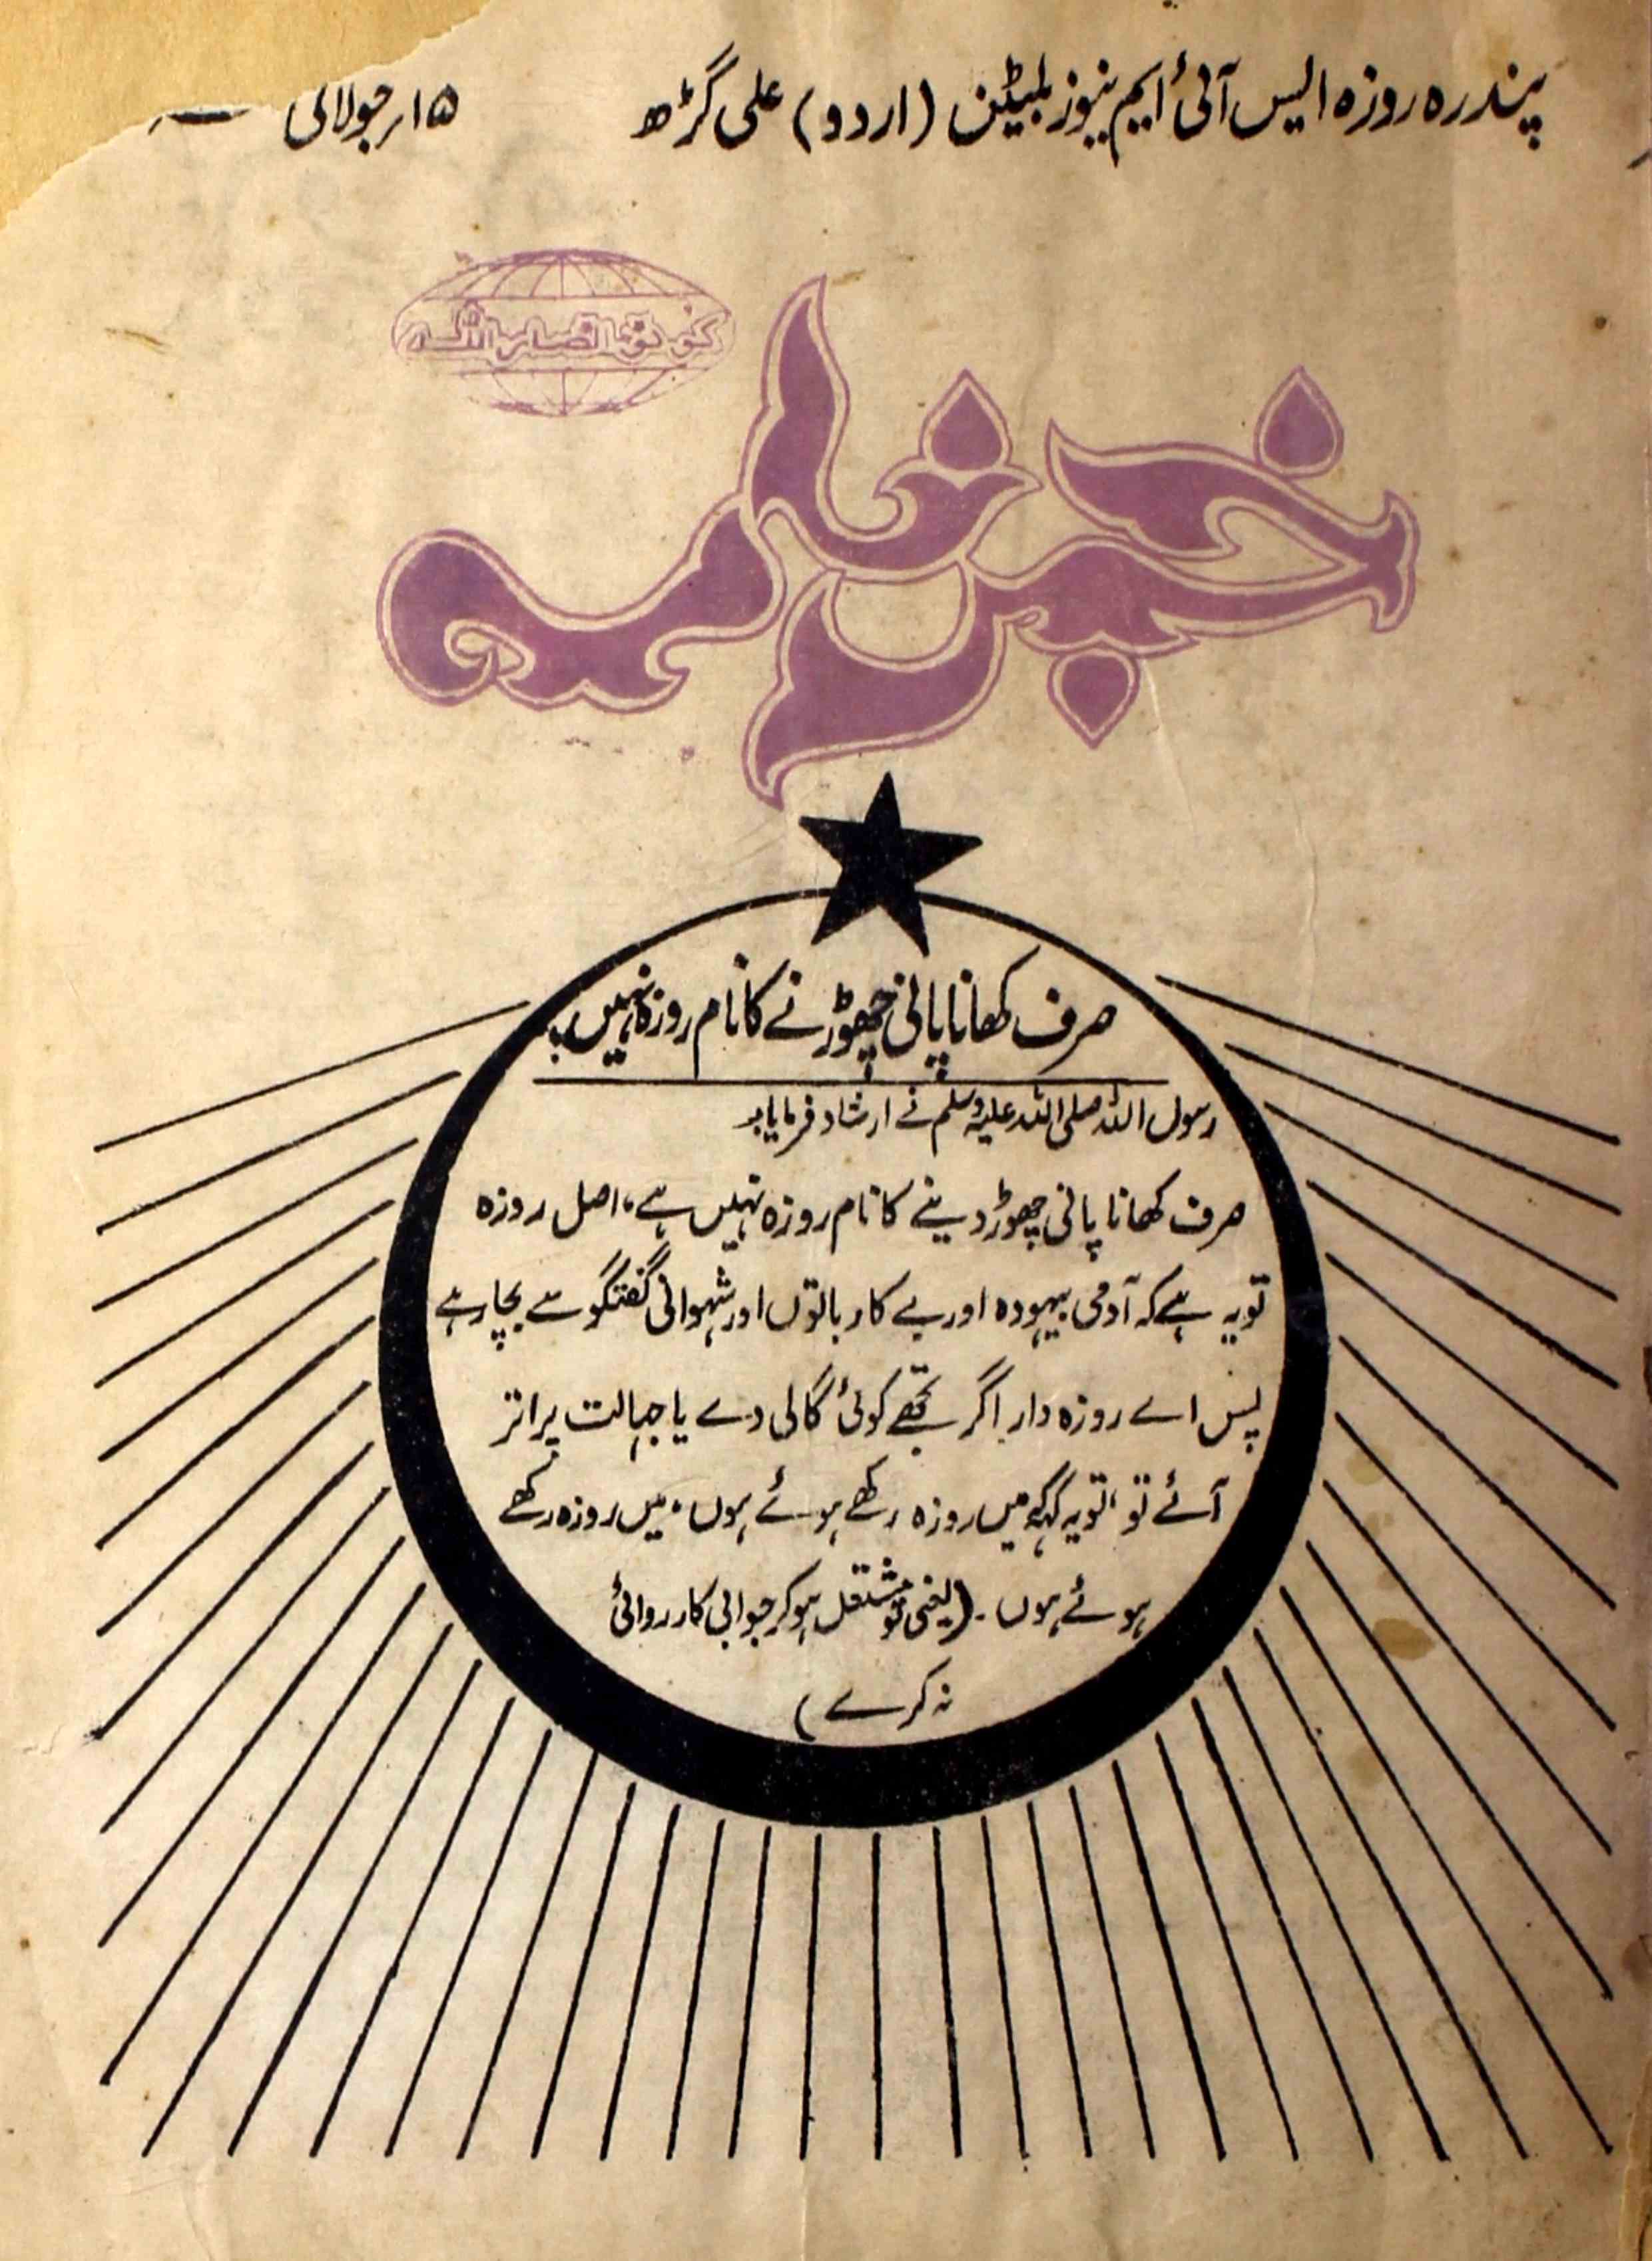 پندرہ روزہ ایس آئی ایم نیوز بلیٹن (اردو) علی گڑھ ۱۵ر جولائی
کونوا انصار اللہ
خبرنامہ
صرف کھانا پانی چھوڑنے کا نام روزہ نہیں ہے
رسول اللہ صلی اللہ علیہ وسلم نے ارشاد فرمایا :
صرف کھانا پانی چھوڑ دینے کا نام روزہ نہیں ہے، اصل روزہ
تو یہ ہے کہ آدمی بیہودہ اور بے کار باتوں اور شہوانی گفتگو سے بچا رہے
پس اے روزہ دار اگر تجھے کوئی گالی دے یا جہالت پر اتر
آئے تو، تو یہ کہہ میں روزہ رکھے ہوئے ہوں، میں روزہ رکھے
ہوئے ہوں۔ (یعنی تو مشتعل ہو کر جوابی کارروائی
نہ کرے)